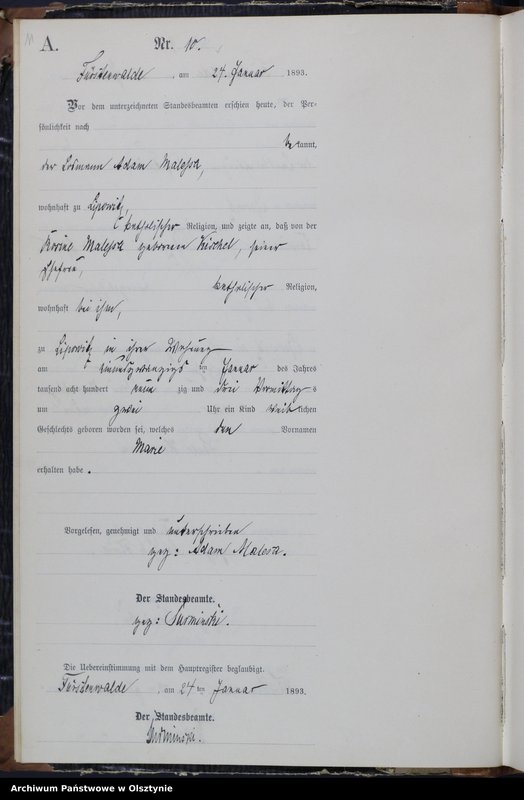 A.
Nr. 10.
Fürstenwalde, am 24. Januar 1893.
Vor dem unterzeichneten Standesbeamten erschien heute, der Per-
sönlichkeit nach
bekannt,
der Losmann Adam Malessa,
wohnhaft zu Lipowitz,
katholischer Religion, und zeigte an, daß von der
Rosine Malessa geborenen, seiner
Ehefrau,
katholischer Religion,
wohnhaft bei ihm,
zu Lipowitz in ihrer Wohnung
am einundzwanzigsten Januar des Jahres
tausend acht hundert neunzig und drei Vormittags
um zwei Uhr ein Kind weiblichen
Geschlechts geboren worden sei, welches den Vornamen
Marie
erhalten habe.
Vorgelesen, genehmigt und unterschrieben
gez: Adam Malessa.
Der Standesbeamte.
gez: Surminski.
Die Uebereinstimmung mit dem Hauptregister beglaubigt.
Fürstenwalde, am 24ten Januar 1893.
Der Standesbeamte.
Surminski.
Archiwum Państwowe w Olsztynie